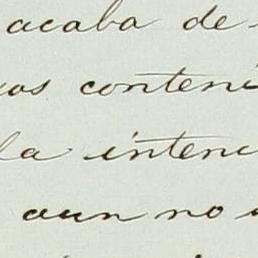 acaba de
conteni
la intenc
aun no